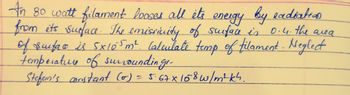 An 80 watt filament looses all its energy by radiation
from its surface The emissivity of surface is 0.4 the area
of surface is 5x10⁻⁵m² Calculate temp of filament. Neglect
temperature of surroundings.
Stefan's constant (σ) = 5.67x10⁻⁸ w/m²k⁴.